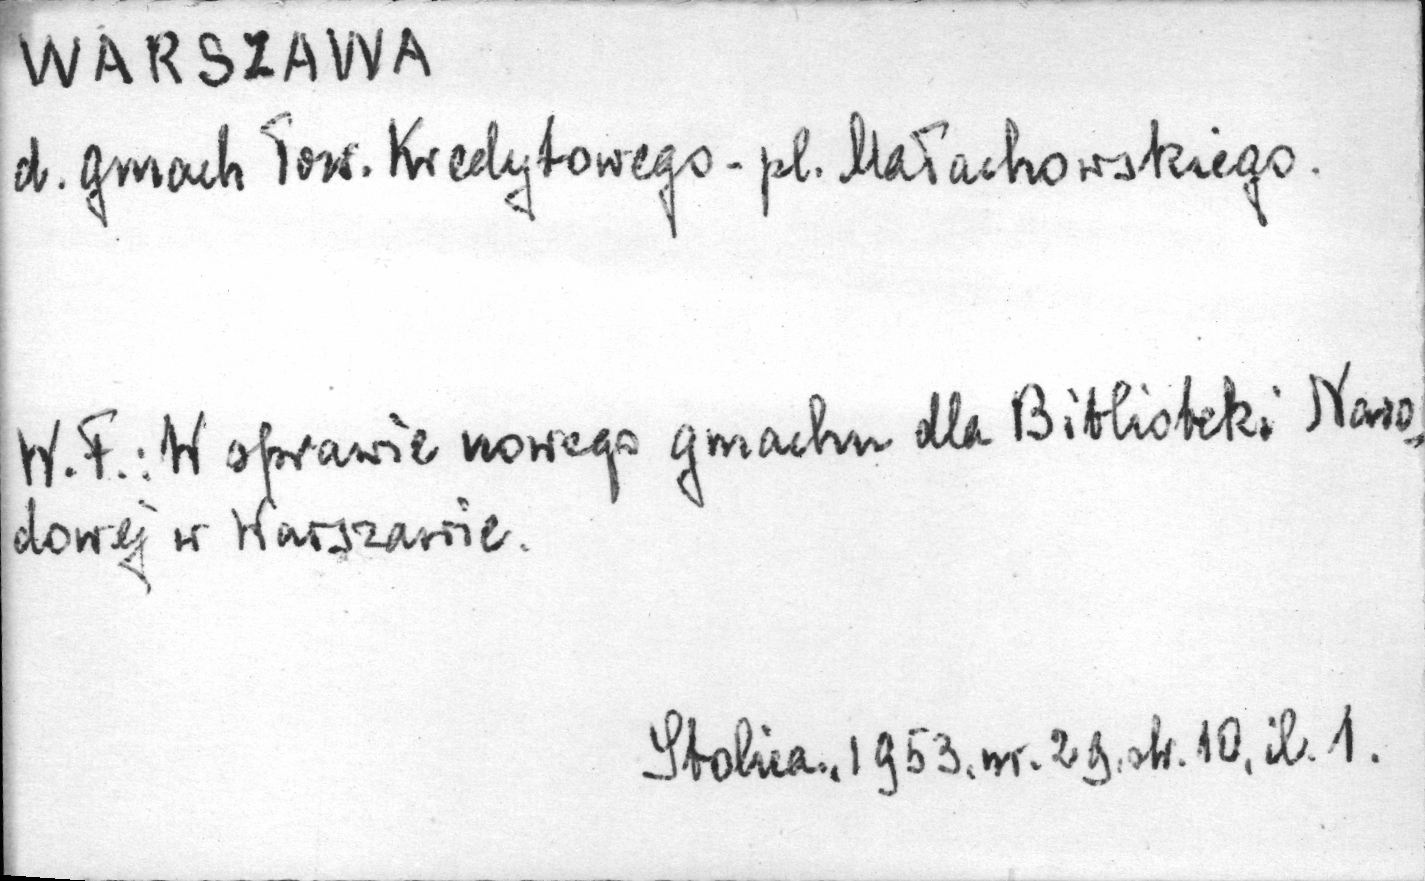 WARSZAWA
d. gmach Tow. Kredytowego - pl. Małachowskiego.
W. F.: W sprawie nowego gmachu dla Biblioteki Naro-
dowej w Warszawie.
Stolica., 1953, nr. 29, str. 10, il. 1.